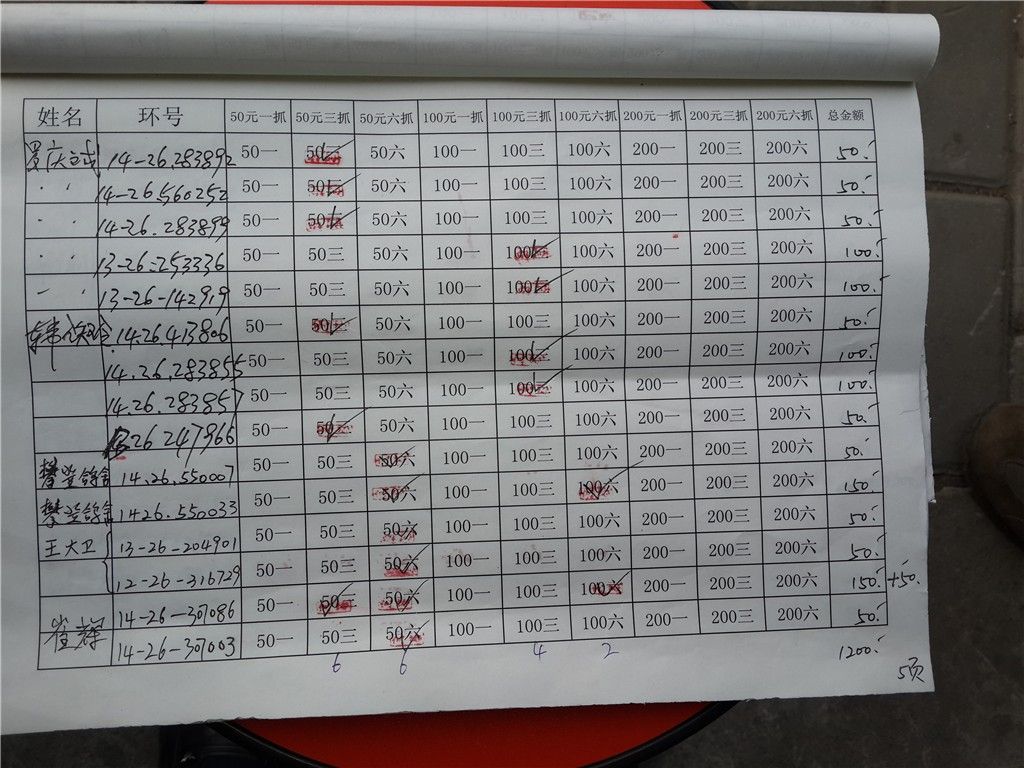 姓名 环号 50元一抓 50元三抓 50元六抓 100元一抓 100元三抓 100元六抓 200元一抓 200元三抓 200元六抓 总金额
14-26.283892 50一 50三 50六 100一 100三 100六 200一 200三 200六 50.-
14-26.560252 50一 50三 50六 100一 100三 100六 200一 200三 200六 50.-
14-26.283899 50一 50三 50六 100一 100三 100六 200一 200三 200六 50.-
13-26-253336 50一 50三 50六 100一 100三 100六 200一 200三 200六 100.-
13-26-142919 50一 50三 50六 100一 100三 100六 200一 200三 200六 100.-
14-26.413806 50一 50三 50六 100一 100三 100六 200一 200三 200六 50.-
14.26.283855 50一 50三 50六 100一 100三 100六 200一 200三 200六 100.-
14.26.283857 50一 50三 50六 100一 100三 100六 200一 200三 200六 100.-
26.247966 50一 50三 50六 100一 100三 100六 200一 200三 200六 50.-
14.26.550007 50一 50三 50六 100一 100三 100六 200一 200三 200六 50.-
1426.550033 50一 50三 50六 100一 100三 100六 200一 200三 200六 150.-
王大卫 13-26-204901 50一 50三 50六 100一 100三 100六 200一 200三 200六 50.-
12-26-316729 50一 50三 50六 100一 100三 100六 200一 200三 200六 50.-
崔辉 14-26-307086 50一 50三 50六 100一 100三 100六 200一 200三 200六 150.- +50.
14-26-307003 50一 50三 50六 100一 100三 100六 200一 200三 200六 50.-
6 6 4 2 1200.-
5页